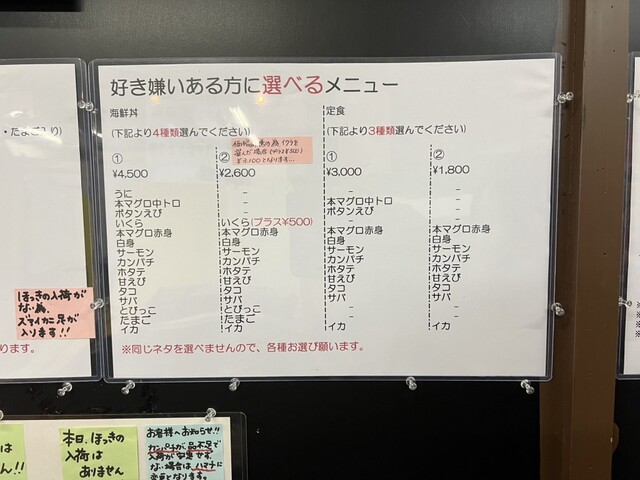 好き嫌いある方に選べるメニュー
海鮮丼
(下記より4種類選んでください)
①
¥4,500
うに
本マグロ中トロ
ボタンえび
いくら
本マグロ赤身
白身
サーモン
カンパチ
ホタテ
甘えび
タコ
サバ
とびっこ
たまご
イカ
②
¥2,600
-
-
-
いくら(プラス¥500)
本マグロ赤身
白身
サーモン
カンパチ
ホタテ
甘えび
タコ
サバ
とびっこ
たまご
イカ
の為 イクラを
選んだ場合(プラス¥500)
¥3,100となります…
定食
(下記より3種類選んでください)
①
¥3,000
-
本マグロ中トロ
ボタンえび
-
本マグロ赤身
白身
サーモン
カンパチ
ホタテ
甘えび
タコ
サバ
-
-
イカ
②
¥1,800
-
-
-
-
本マグロ赤身
白身
サーモン
カンパチ
ホタテ
甘えび
タコ
サバ
-
-
イカ
※同じネタを選べませんので、各種お選び願います。
・たまご入り)
ほっきの入荷が
ない為、
ズワイカニ足が
入ります!!
ります。
は
ん!!
本日、ほっきの
入荷は
ありません
お客様へお知らせ!!
カンパチが品不足で
入荷が安定せず
ない場合はハマチに
変更となります。